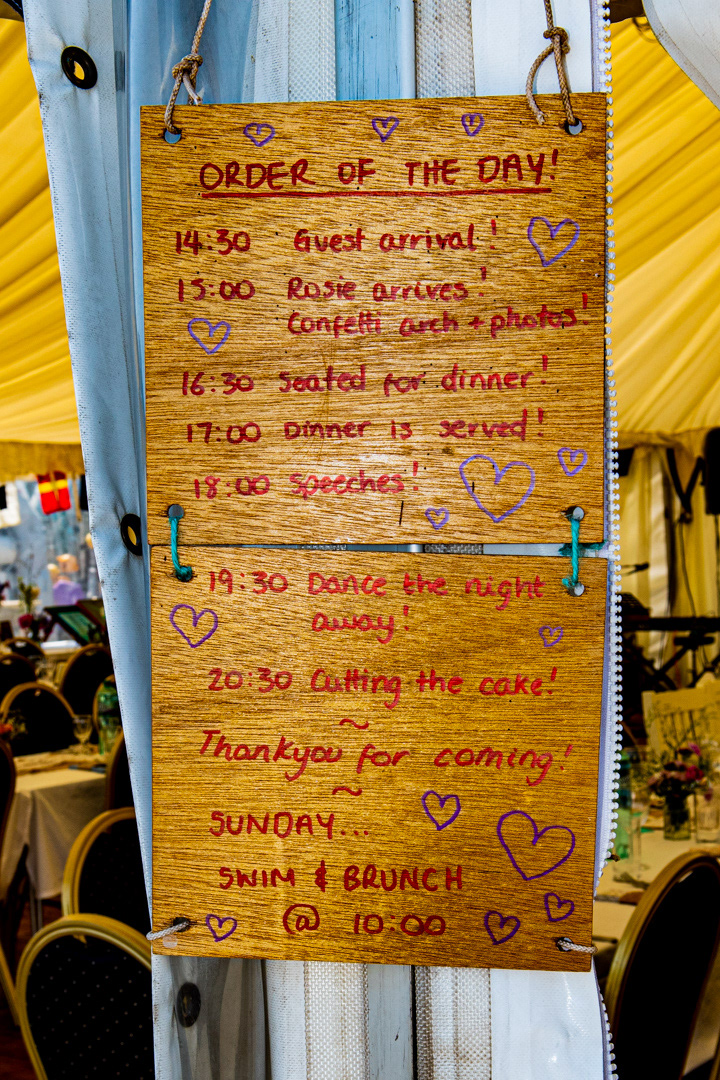 ORDER OF THE DAY!
14:30 Guest arrival!
15:00 Rosie arrives!
Confetti arch + photos!
16:30 Seated for dinner!
17:00 Dinner is served!
18:00 Speeches!
19:30 Dance the night
away!
20:30 Cutting the cake!
~
Thankyou for coming!
~
SUNDAY...
SWIM & BRUNCH
@ 10:00